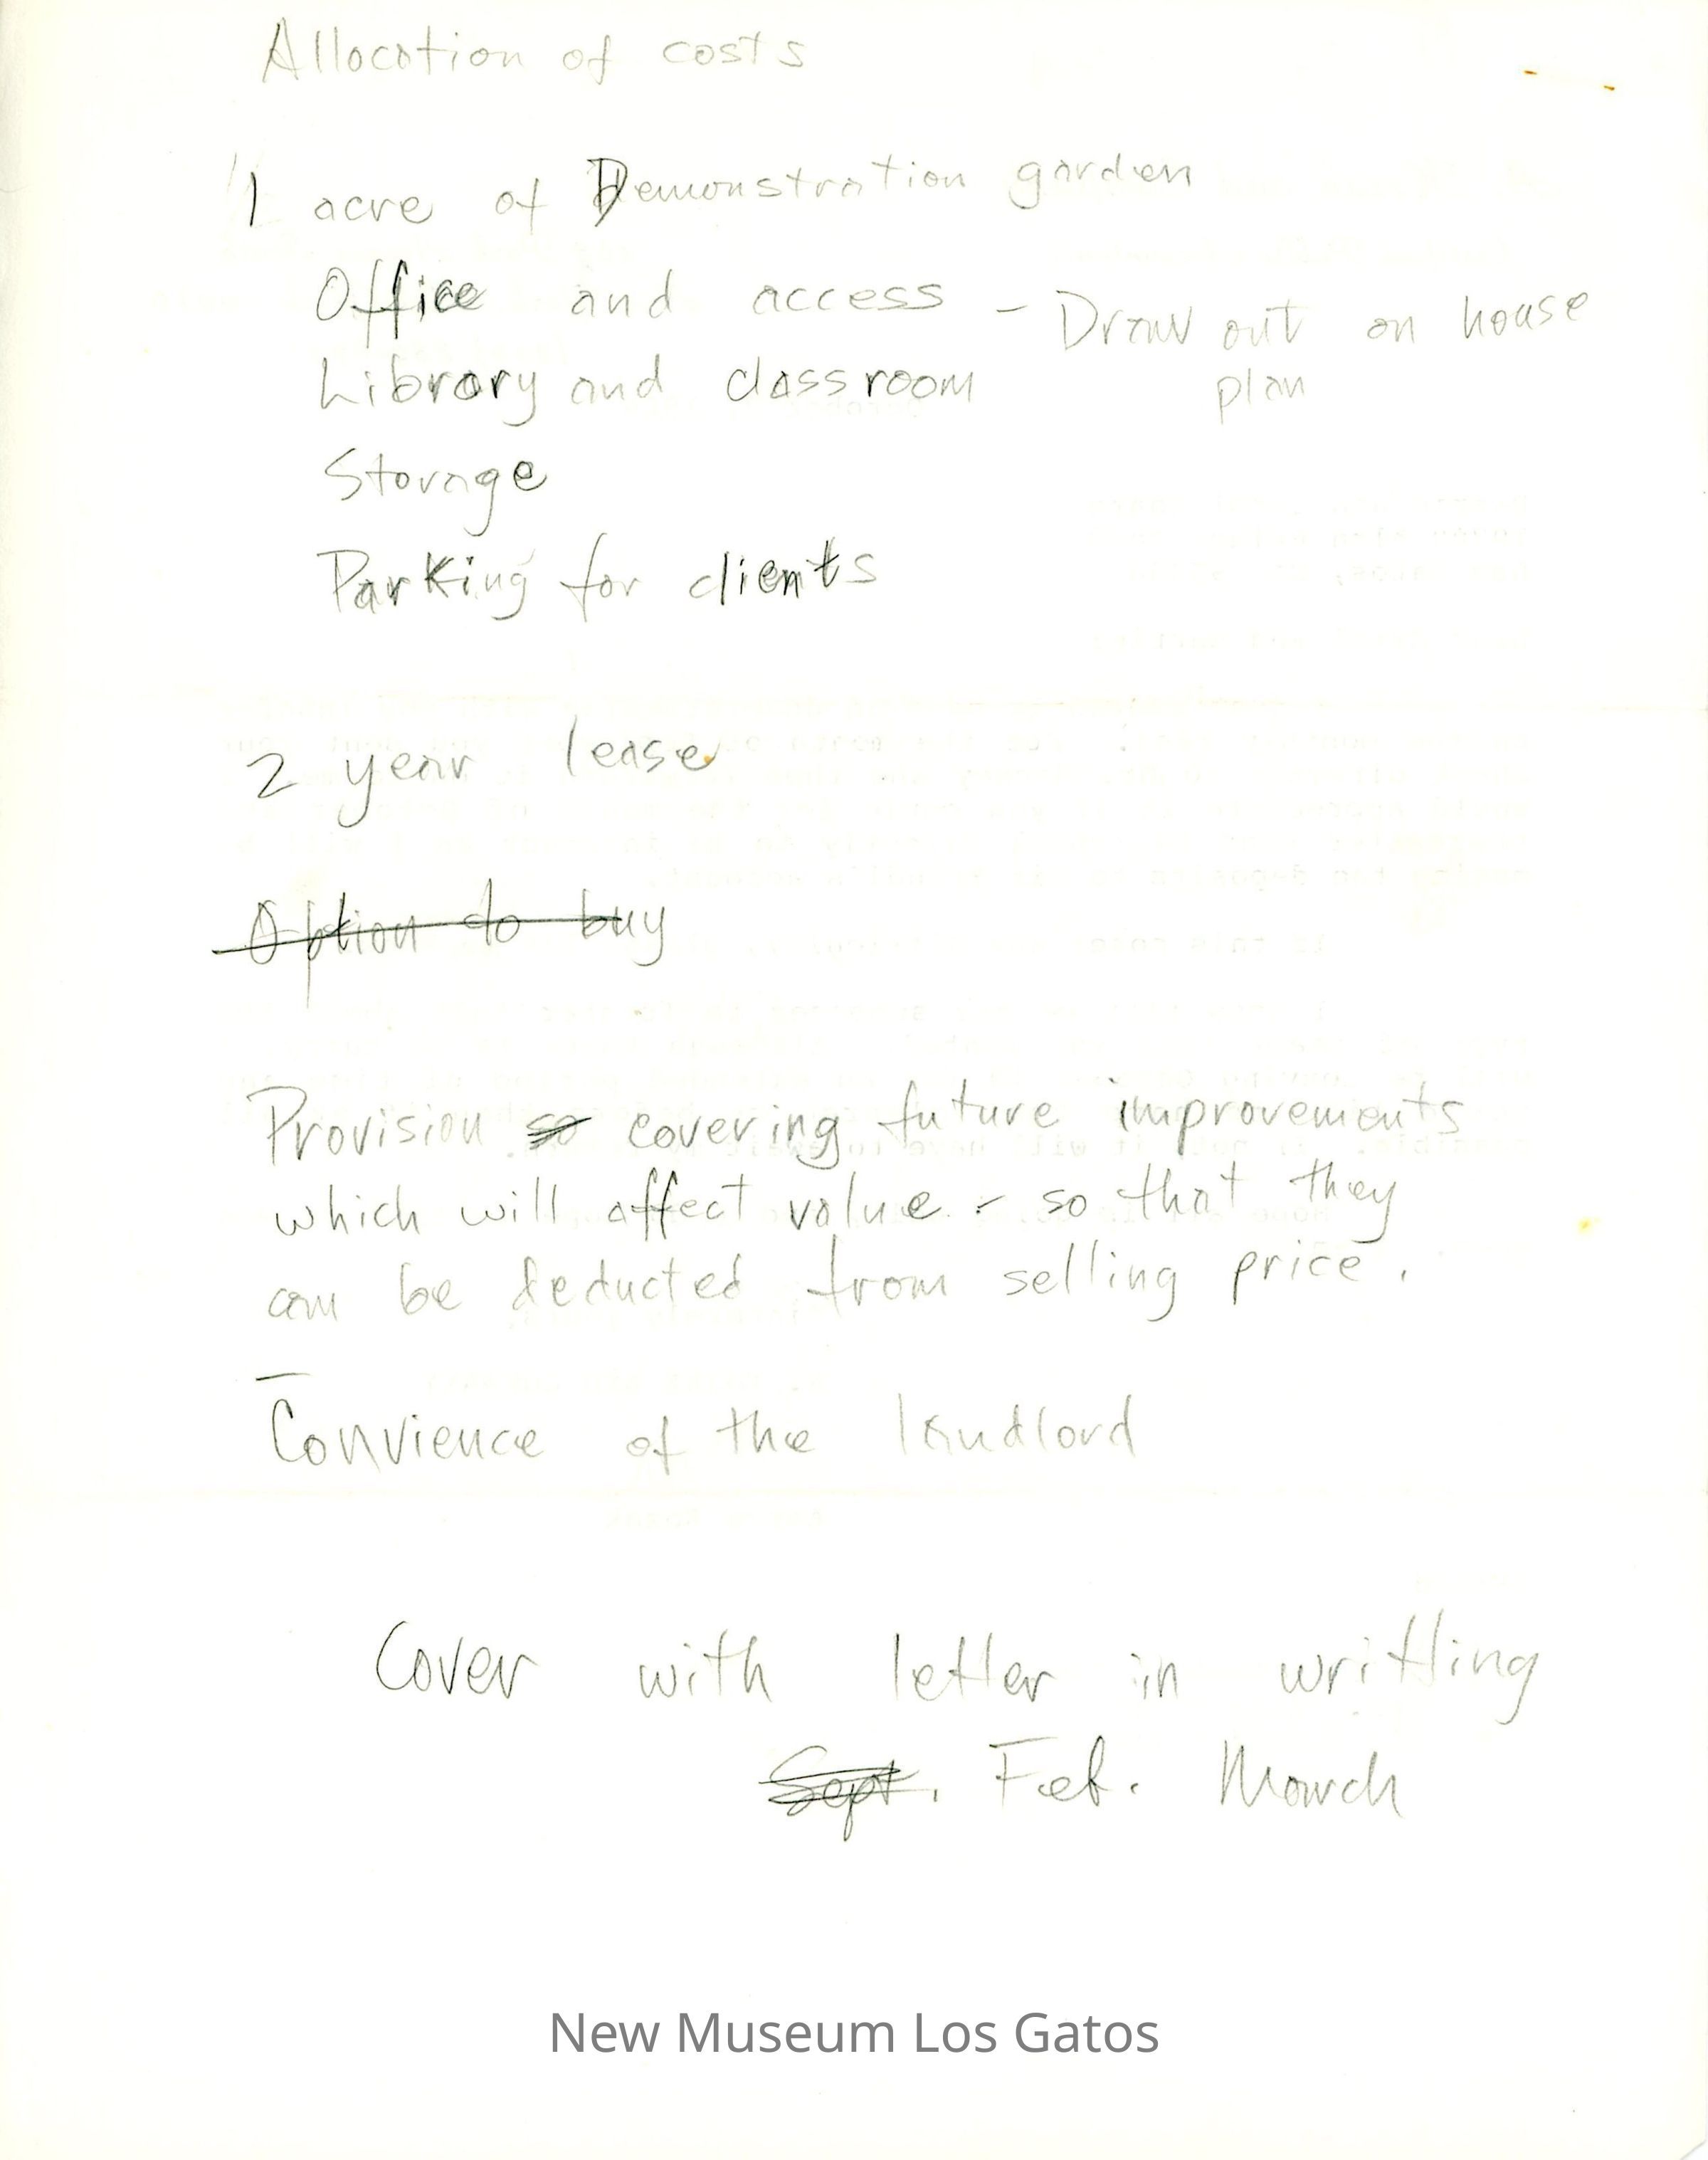 Allocation of costs
1 acre of Demonstration garden
Office and access – Draw out on house
Library and classroom plan
Storage
Parking for clients
2 year lease
Option to buy
Provision so covering future improvements
which will affect value - so that they
can be deducted from selling price.
Convience of the landlord
Cover with letter in writting
Sept. Feb. March
New Museum Los Gatos